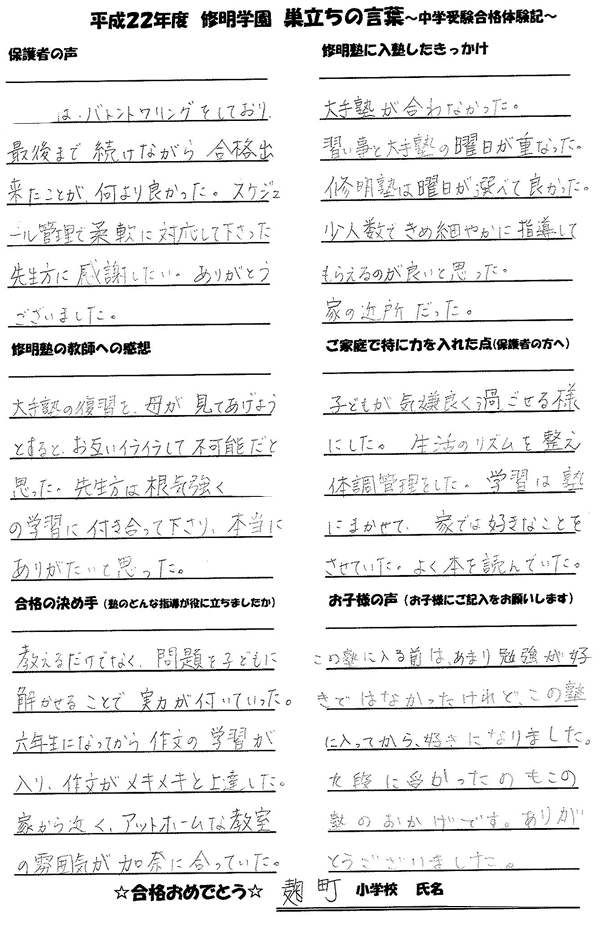 平成22年度 修明学園 巣立ちの言葉～中学受験合格体験記～
保護者の声
は、バトントワリングをしており、
最後まで続けながら 合格出
来たことが、何より良かった。スケジュ
ール管理で柔軟に対応して下さった
先生方に感謝したい。ありがとう
ございました。
修明塾の教師への感想
大手塾の復習を、母が見てあげよう
とすると、お互いイライラして不可能だと
思った。先生方は根気強く
の学習に付き合って下さり、本当に
ありがたいと思った。
合格の決め手（塾のどんな指導が役に立ちましたか）
教えるだけでなく、問題を子どもに
解かせることで実力が付いていった。
六年生になってから作文の学習が
入り、作文がメキメキと上達した。
家から近く、アットホームな教室
の雰囲気が加奈に合っていた。
修明塾に入塾したきっかけ
大手塾が合わなかった。
習い事と大手塾の曜日が重なった。
修明塾は曜日が選べて良かった。
少人数できめ細やかに指導して
もらえるのが良いと思った。
家の近所だった。
ご家庭で特に力を入れた点（保護者の方へ）
子どもが気嫌良く過ごせる様
にした。生活のリズムを整え
体調管理をした。学習は塾
にまかせて、家では好きなことを
させていた。よく本を読んでいた。
お子様の声（お子様にご記入をお願いします）
この塾に入る前は、あまり勉強が好
きではなかったけれど、この塾
に入ってから、好きになりました。
九段に受かったのもこの
塾のおかげです。ありが
とうございました。
☆合格おめでとう☆ 麹町 小学校 氏名